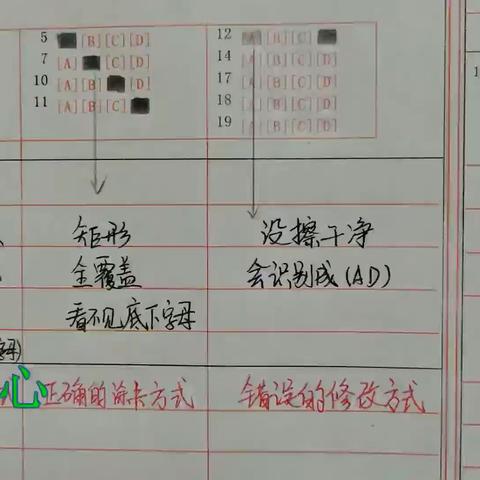 5 [B][C][D]
7 [A] [C][D]
10 [A][B] [D]
11 [A][B][C]
12 [A][B][C]
14 [A][B][C][D]
17 [A][B][C][D]
18 [A][B][C][D]
19 [A][B][C][D]
矩形
全覆盖
看不见底下字母
没擦干净
会识别成(AD)
字母)
心
正确的涂卡方式
错误的修改方式
1